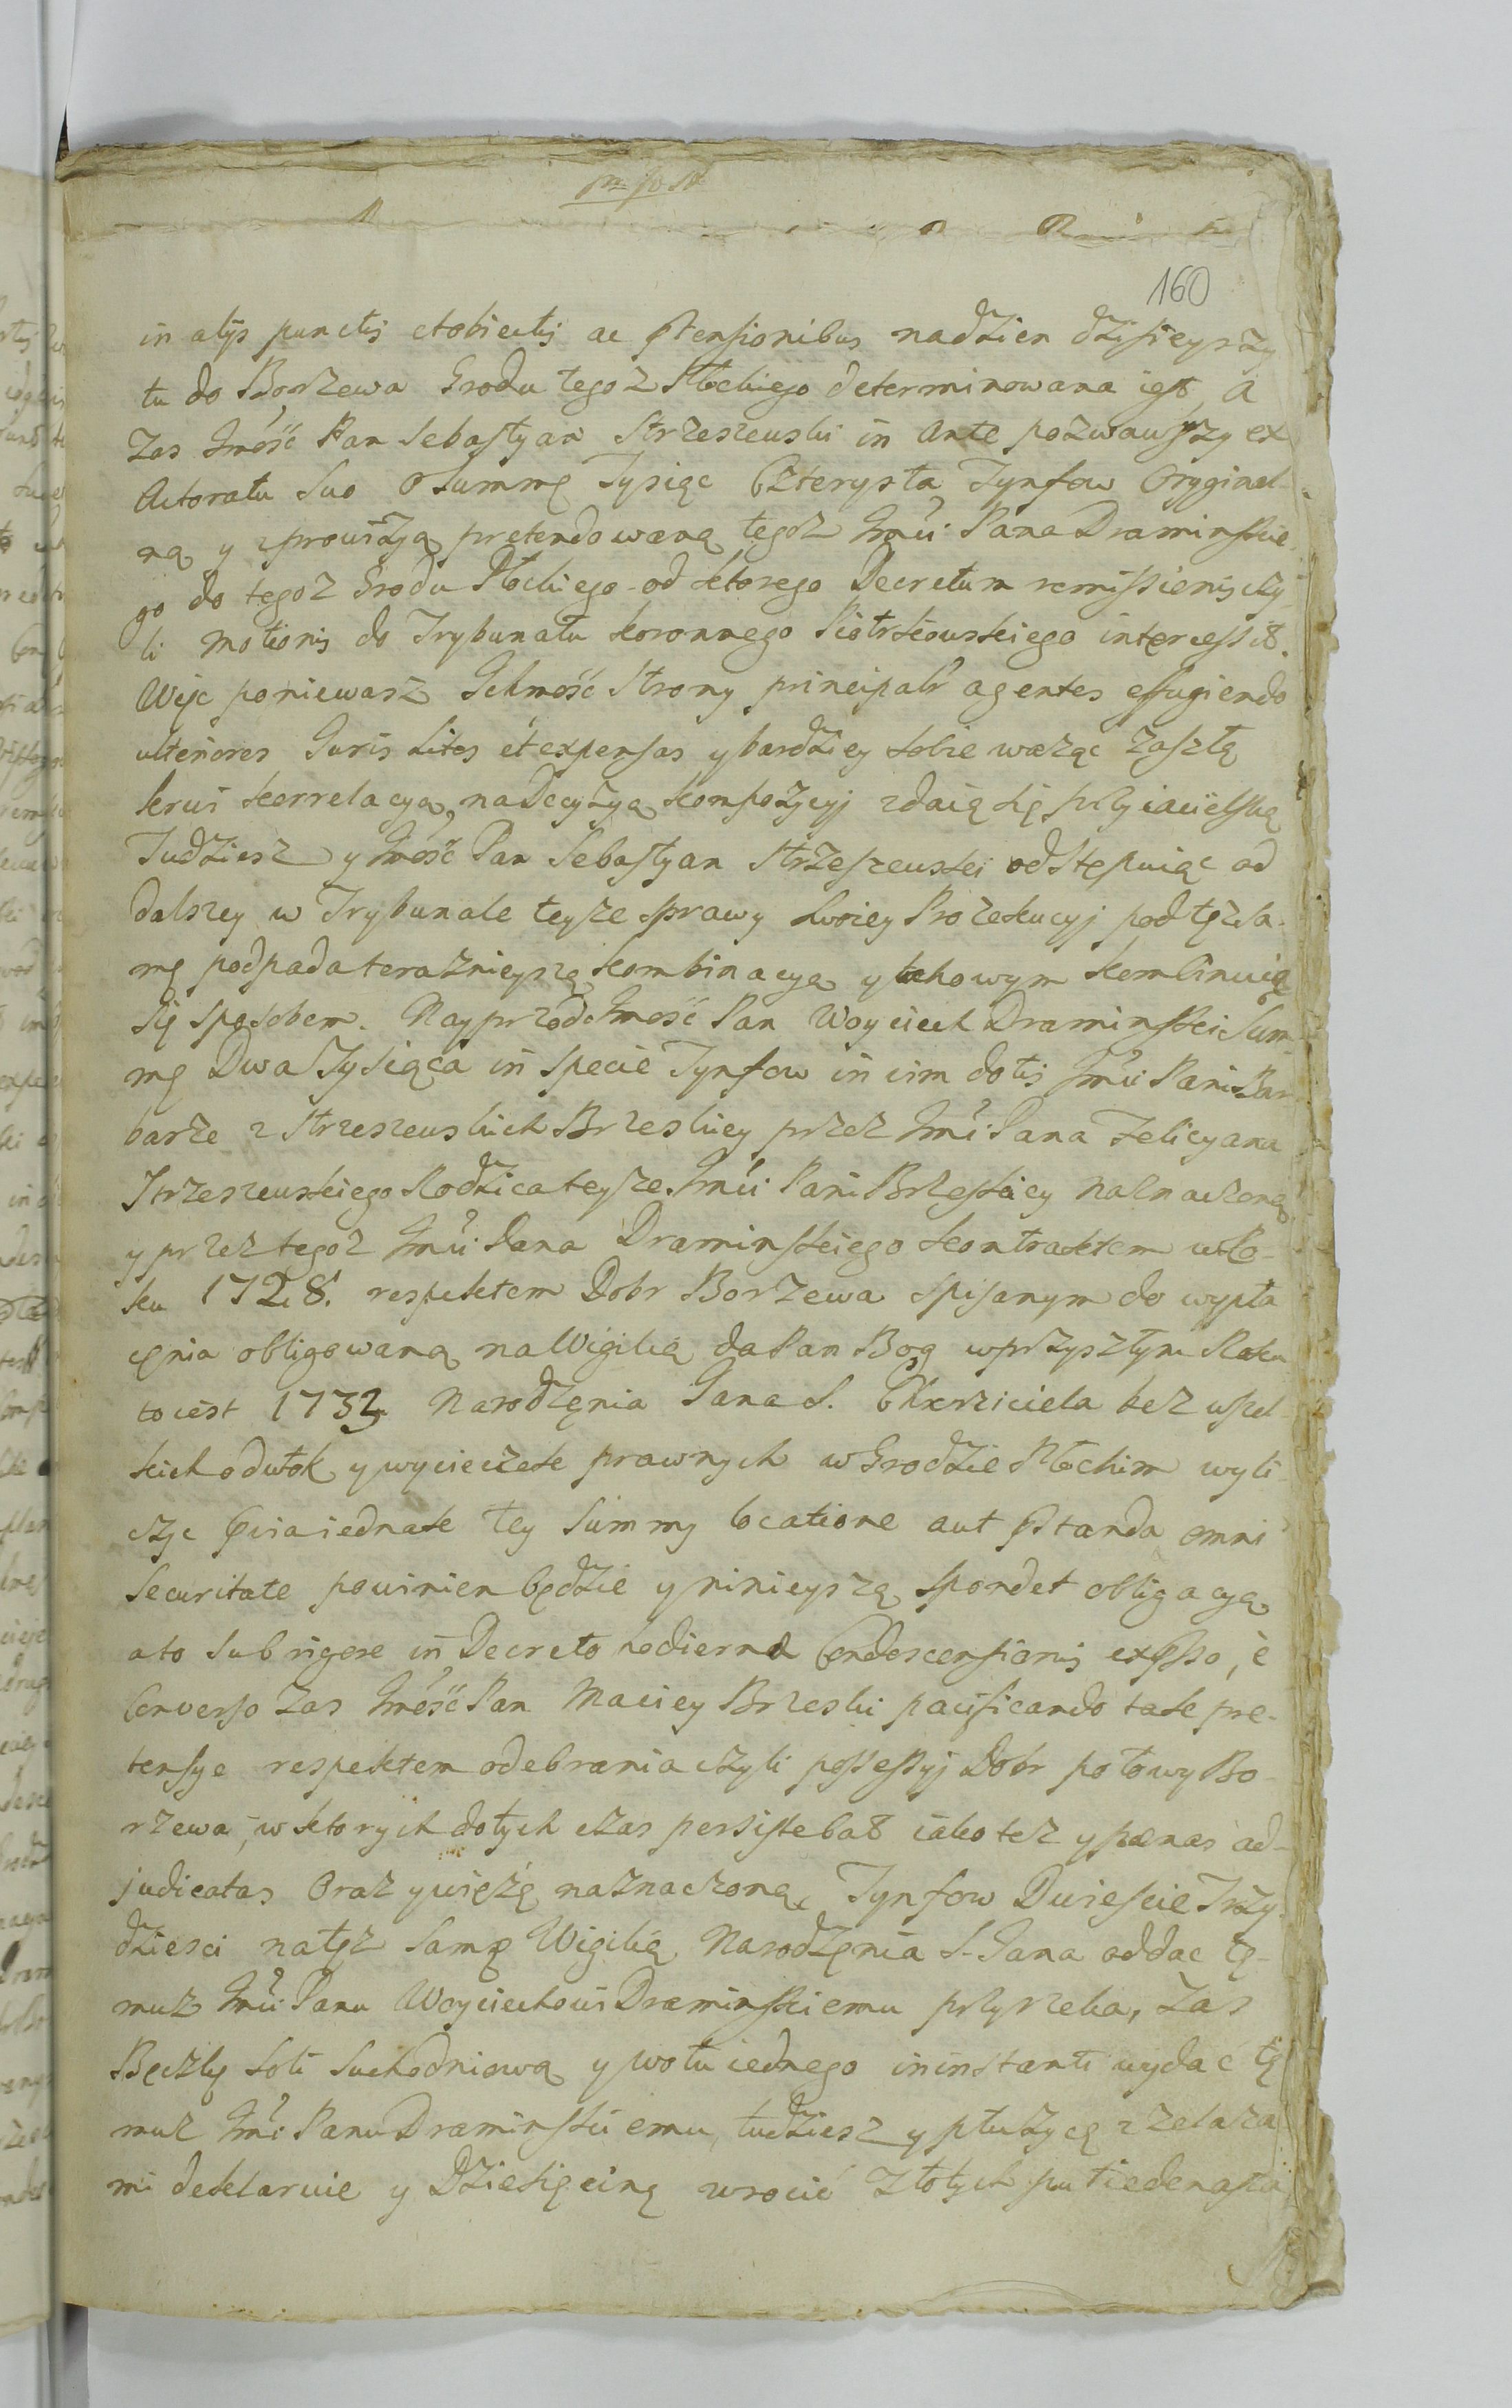 160
in alys punctis et obiectis ac prtensionibus nadzien dzisieyszy
tu do Borzewa Grodu tegoz Płockiego determinowana iest, a
Zas Jmość Pan Sebastyan Strzeszewski in Ante pozwawszy ex
Actoratu suo o summę Tysiąc Czterysta Tynfow Oryginal-
ną y zprowizyą pretendowaną tegoz Jmći Pana Draminskie-
go do tegoz Grodu Płockiego od ktorego Decretum remissionis czy
li motionis do Trybunału koronnego Piotrkowskiego intercessit.
Więc poniewasz Ichmość Strony principalr agentes effugiendo
ulteriores Juris Lites et expensas y bardziey sobie ważąc zaszłą
krwi korrelacyą, na Decyzyą kompozycyj zdaią się przyiacielską
Tudziesz y Jmość Pan Sebastyan Strzeszewski odstępuiąc od
dalszey w Trybunale teyze sprawy swoiey Prozekucyj pod tęz sa-
mę podpada teraznieyszą kombinacyą y takowym kombinuią
się sposobem. Nayprzod Jmość Pan Woyciech Draminski Sum-
mę Dwa Tysiąca in specie Tynfow in vim dotis Jmći Pani Bar
barze z Strzeszewskich Brzeskiey przez Jmći Pana Felicyana
Strzeszewskiego Rodzica teyze Jmći Pani Brzeskiey naznaczoną
y przez tegoz Jmći Pana Draminskiego kontraktem w Ro-
ku 1728. respektem Dobr Borzewa spisanym do wypła
cęnia obligowaną na Wigilią da Pan Bog w przyszłym Roku
to iest 1732 Narodzęnia Jana S. Chrzciciela bez wszel-
kich odwłok y wycieczek prawnych w Grodzie Płockim wyli-
czyc pvia iednak tey summy locatione aut prstanda omni
securitate powinien będzie y ninieyszą spondet obligacyą
ato sub rigore in Decreto hodierna Condescensionis expsso, è
Converso Zas Jmość Pan Maciey Brzeski pacificando tak pre-
tensye respektem odebrania czyli possessyj Dobr połowy Bo-
rzewa, w ktorych do tych czas persistebat iako tez y pænas ad-
judicatas Oraz y więżę naznaczoną Tynfow Dwiescie Trzy
dziesci na tęz samę Wigilią Narodzęnia S. Jana oddac tę-
muz Jmći Panu Woyciechowi Draminskiemu przyrzeka, Zas
Bęczkę soli suchodniową y wołu iednego in instanti wydać tę
muz Jmći Panu Draminskiemu, tudziesz y płużycę z zelaza
mi deklaruie y Dziesięcinę wrocić Złotych puł iedenasta